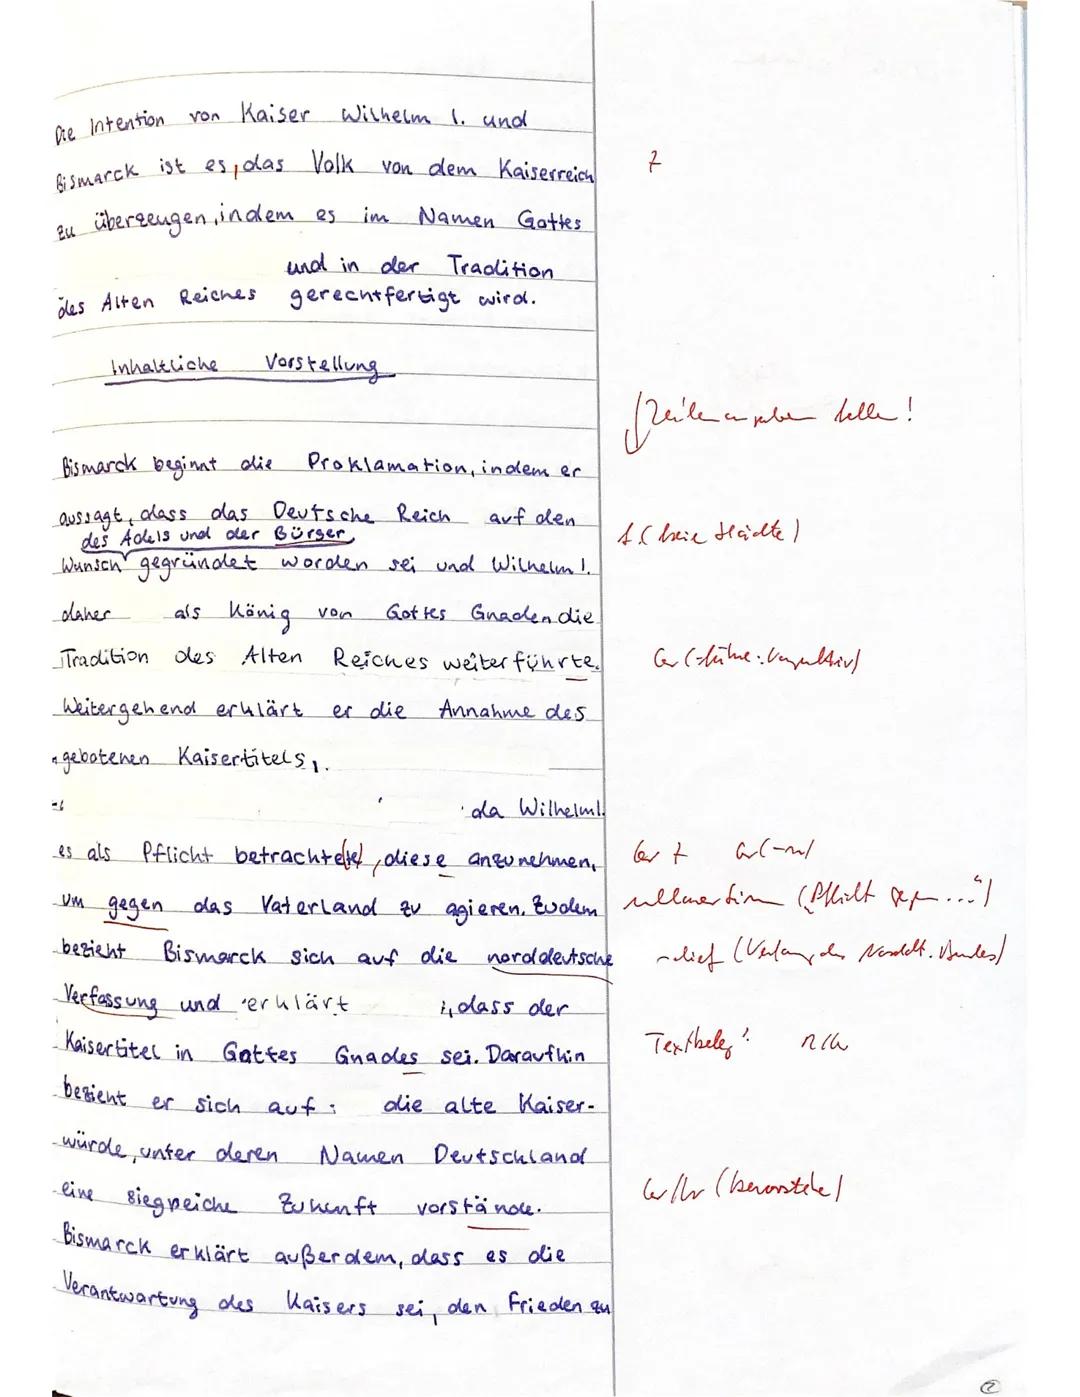 Die Intention von Kaiser Wilhelm I. und
Bismarck ist es, das Volk von dem Kaiserreich
zu überzeugen, indem es im Namen Gottes
und in der Tradition
des Alten Reiches gerechtfertigt wird.
Inhaltliche Vorstellung
Zeilenangaben fehlen!
Bismarck beginnt die Proklamation, indem er
aussagt, dass das Deutsche Reich auf den
des Adels und der Bürger
(freie Städte)
Wunsch gegründet worden sei und Wilhelm I.
daher als König von Gottes Gnaden die
Tradition des Alten Reiches weiterführte.
Gr
Weitergehend erklärt er die Annahme des
angebotenen Kaisertitels,
da Wilhelm I.
es als Pflicht betrachte(te), diese anzunehmen,
Gr Gr(-n)
um gegen das Vaterland zu agieren. Zudem
(Pflicht gegen ...")
bezieht Bismarck sich auf die norddeutsche
(Verfassung des Norddt. Bundes)
Verfassung und erklärt, dass der
Kaisertitel in Gottes Gnades sei. Daraufhin
Textbeleg? R/Gr
bezieht er sich auf: die alte Kaiser-
würde, unter deren Namen Deutschland
eine siegreiche Zukunft vorstände.
(bevorstehe)
Bismarck erklärt außerdem, dass es die
Verantwartung des Kaisers sei, den Frieden zu
2